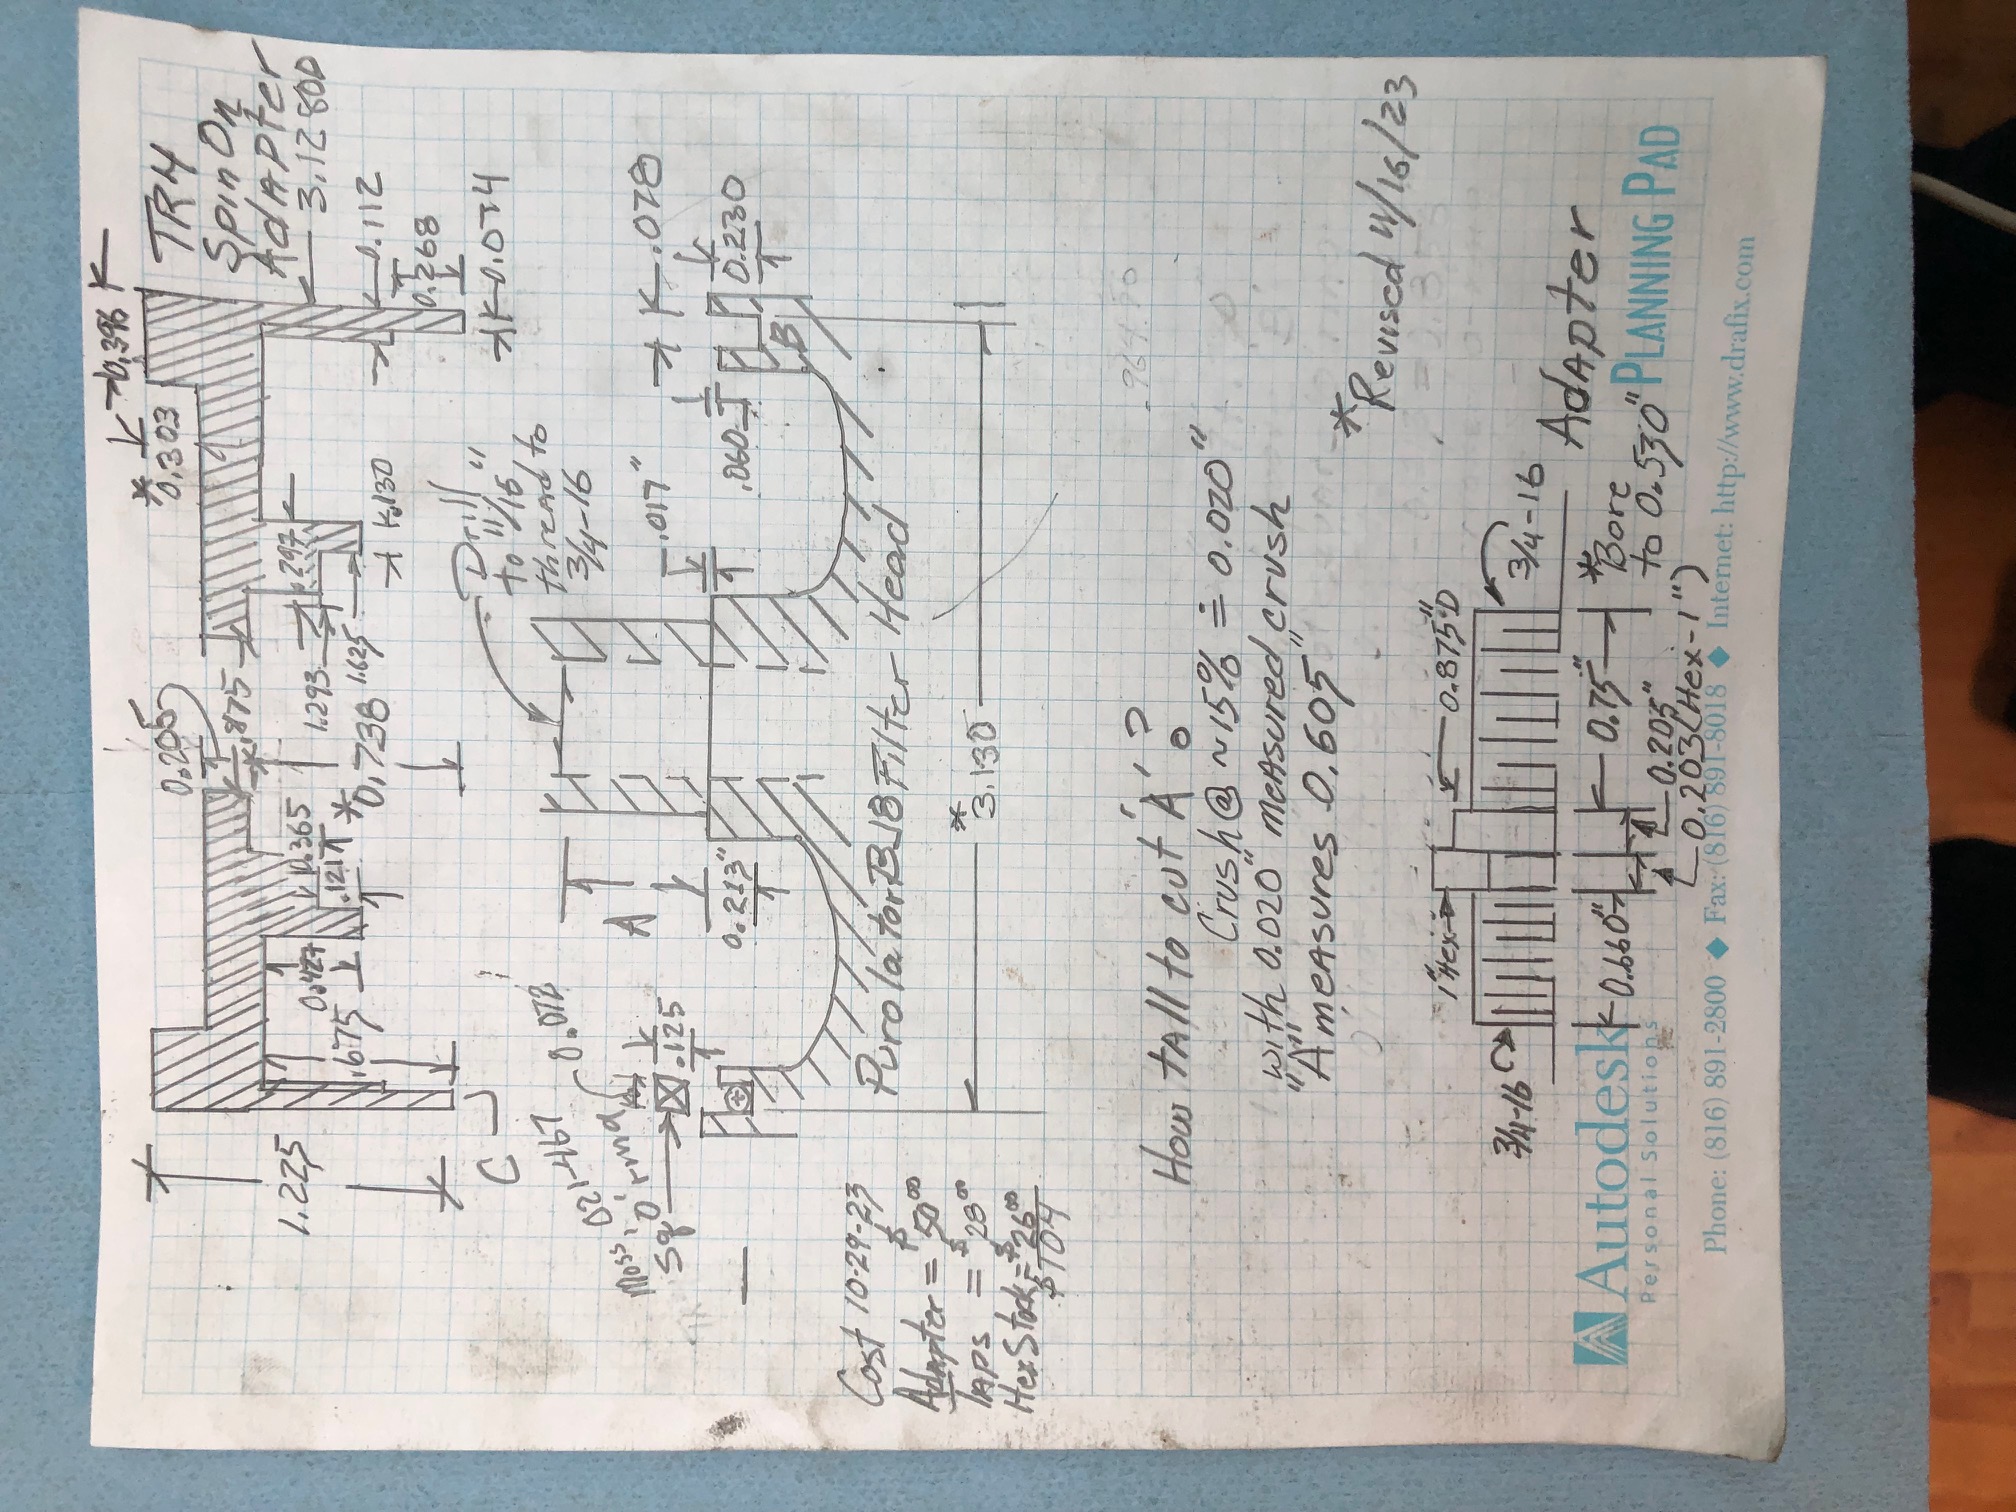 0.396
* 0.303
0.205
TR4
Spin On
Adapter
.875
1.225
0.427
0.365
.297
1.293
3.128 OD
.675
.121
* 0.738
1.625
.130
0.112
0.268
0.074
C
Drill
to 11/16"
thread to
3/4-16
Moss, 021-467
Sq 'O' ring
0.072
.125
A
.017"
.078
0.213"
.060
0.230
B
Purolator B J8 Filter Head
Cost 10-29-23
Adapter = $50⁰⁰
Taps = $28⁰⁰
Hex Stock = $26⁰⁰
$104
* 3.130
How tall to cut 'A' ?
Crush @ ~15% ≐ 0.020"
with 0.020" measured crush
"A" measures 0.605"
* Revised 11/16/23
1" Hex
0.875"D
3/4-16
3/4-16
Adapter
0.660"
0.75"
* Bore
to 0.530"
0.205"
0.203 (Hex-1")
Autodesk
Personal Solutions
PLANNING PAD
Phone: (816) 891-2800 ◆ Fax: (816) 891-8018 ◆ Internet: http://www.drafix.com